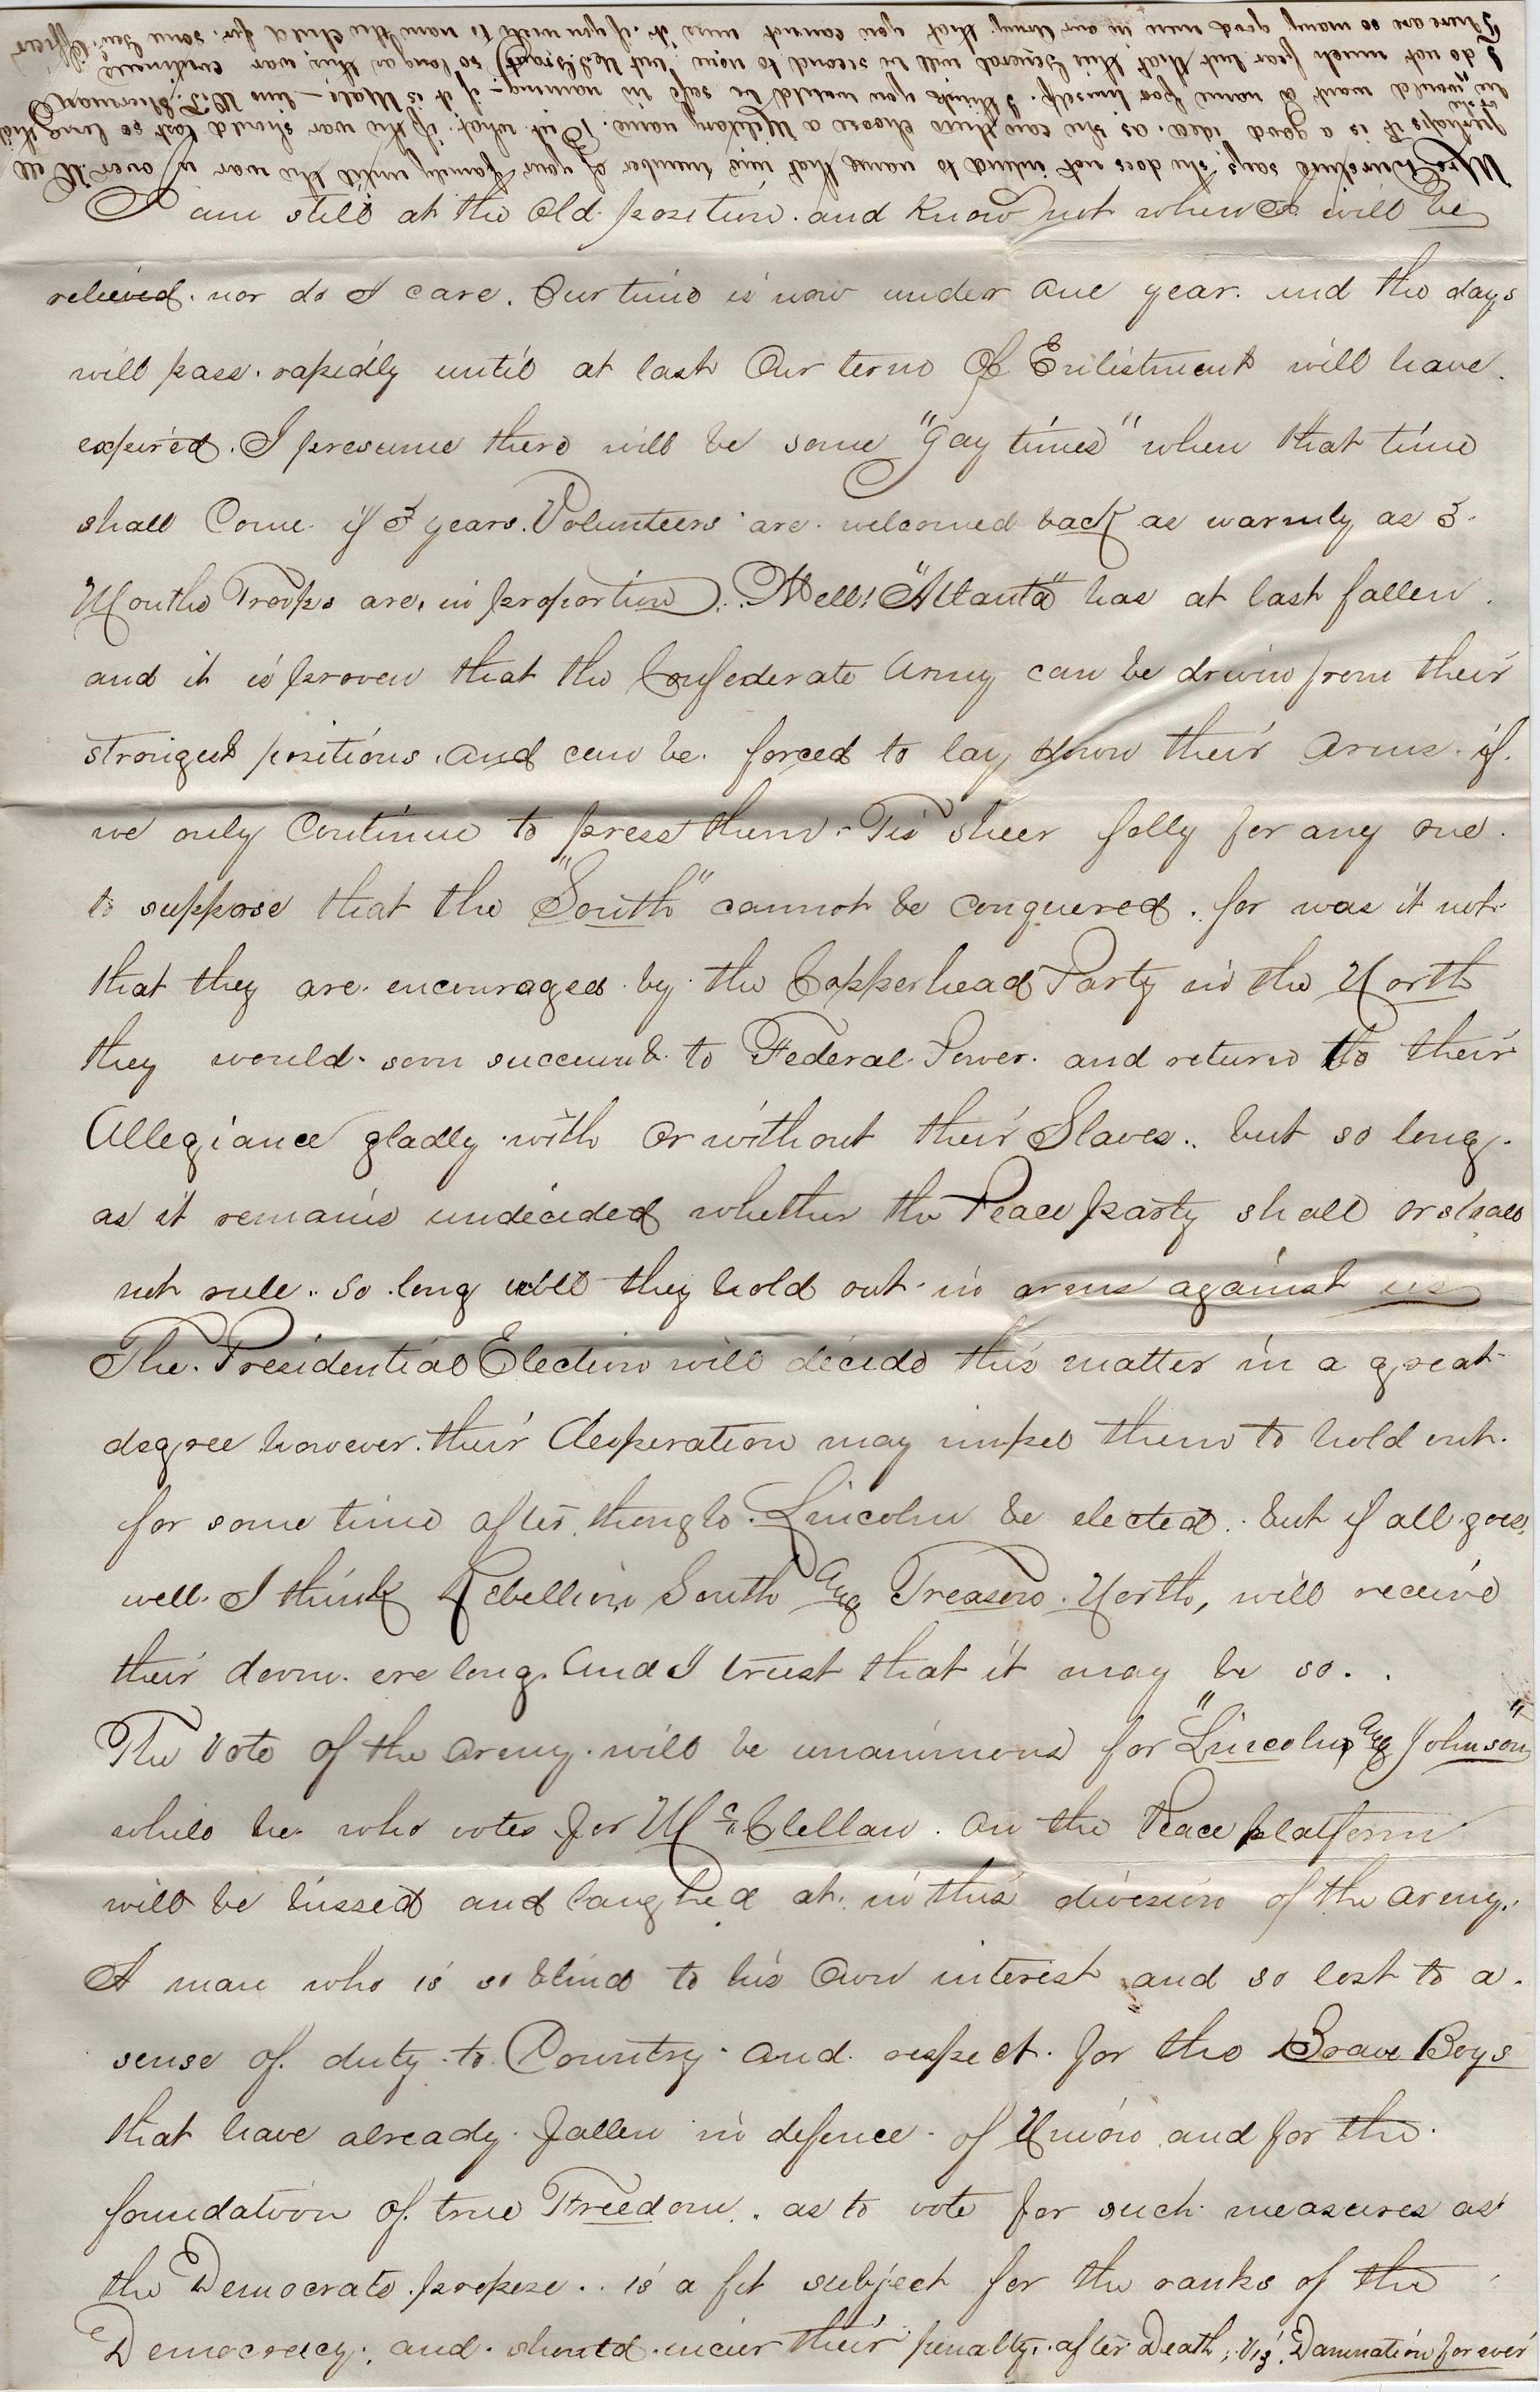 Mrs Winshire says she does not intend to name that wee number of your family until the war is over. Well
perhaps it is a good idea. as she can then choose a Military name. But what if the war should last so long that
he or she would want a name for himself. I think you would be safe in naming - if it is Male - him W.T. Sherman
I do not much fear but that this General will be second to none but U.S. Grant) so long as this war continues
There are so many good men in our army that you cannot miss it if you wish to name the child for some Gen. Officer
I am still at the Old position. and Know not when I will be
relieved. nor do I care. Our time is now under one year. and the days
will pass. rapidly until at last Our term Of Enlistment will have.
expired. I presume there will be some "Gay times" when that time
shall Come. if 3 years. Volunteers are. welcomed back as warmly as 3.
Months Troops are, in proportion. Well! "Atlanta" has at last fallen.
and it is proven that the Confederate Army can be driven from their
strongest positions. and can be. forced to lay down their Arms. if.
we only Continue to press them. Tis sheer folly for any one.
to suppose that the "South" cannot be conquered. for was it not.
that they are. encouraged. by. the Copperhead Party in the North
they would. soon succumb. to Federal. Power. and return to their
Allegiance gladly with or without their Slaves.. but so long.
as it remains undecided whether the Peace party shall or shall
not rule.. so long will they hold out. in arms against us
The. Presidential Election will decide this matter in a great
degree however. their desperation may impel them to hold out.
for some time after. though. Lincoln be elected. but if all. goes.
well. I think Rebellion South and Treason. North, will receive
their doom. ere long. And I trust that it may be so. .
The Vote of the army. will be unanimous for "Lincoln and Johnson"
while he. who votes for McClellan. on the Peace platform
will be hissed and laughed at. in this division of the army.
A man who is so blind to his Own interest and so lost to a.
sense of. duty. to. Country. and. respect. for the Brave Boys
that have already. fallen in defence. of Union and for the.
foundation of. true Freedom.. as to vote for such measures as
the Democrats. propose.. is a fit subject for the ranks of the
Democracy. and. should. incur their penalty. after Death, viz. Damnation forever